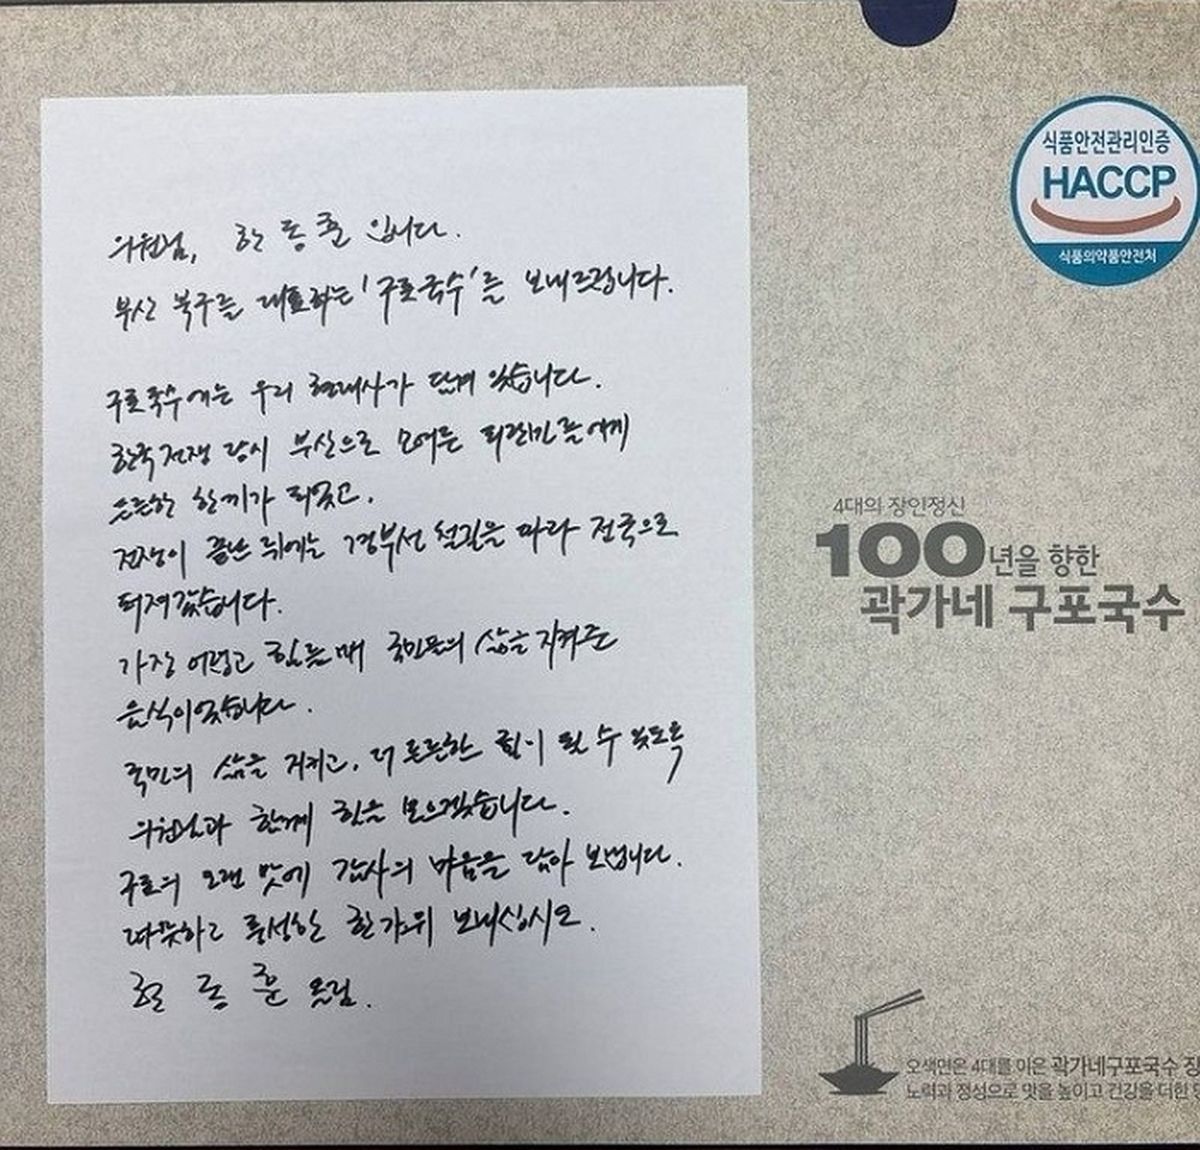 의원님, 한동훈 입니다.
부산 북구를 대표하는 '구포국수'를 보내드립니다.
구포국수에는 우리 현대사가 담겨 있습니다.
한국전쟁 당시 부산으로 모여든 피란민들에게
든든한 한끼가 되었고,
전쟁이 끝난 뒤에는 경부선 철길을 따라 전국으로
퍼져갔습니다.
가장 어렵고 힘든 때 국민들의 삶을 지켜준
음식이었습니다.
국민의 삶을 지키고, 더 든든한 힘이 될 수 있도록
의원님과 함께 힘을 모으겠습니다.
구포의 오랜 맛에 감사의 마음을 담아 보냅니다.
따뜻하고 풍성한 한가위 보내십시오.
한동훈 올림.
식품안전관리인증
HACCP
식품의약품안전처
4대의 장인정신
100년을 향한
곽가네 구포국수
오색면은 4대를 이은 곽가네구포국수 장
노력과 정성으로 맛을 높이고 건강을 더한